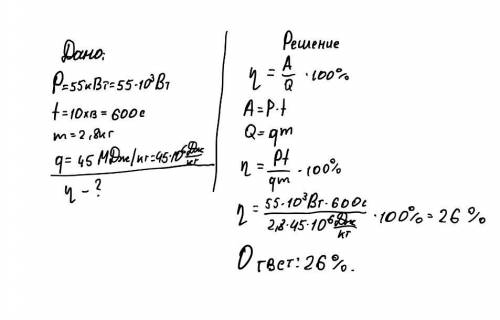 Дано:
P=55кВт=55·10³Вт
t=10хв=600с
m=2,8кг
q=45 МДж/кг=45·10⁶ Дж/кг
η-?
Решение
η = A/Q · 100%
A=P·t
Q=qm
η = Pt/qm · 100%
η = 55·10³Вт·600с / 2,8·45·10⁶ Дж/кг · 100% = 26%
Ответ: 26%.